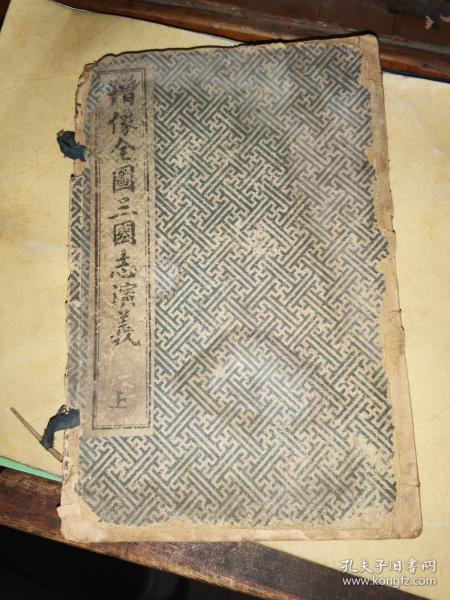 增像全圖三國志演義
上
孔夫子旧书网
www.kongfz.com